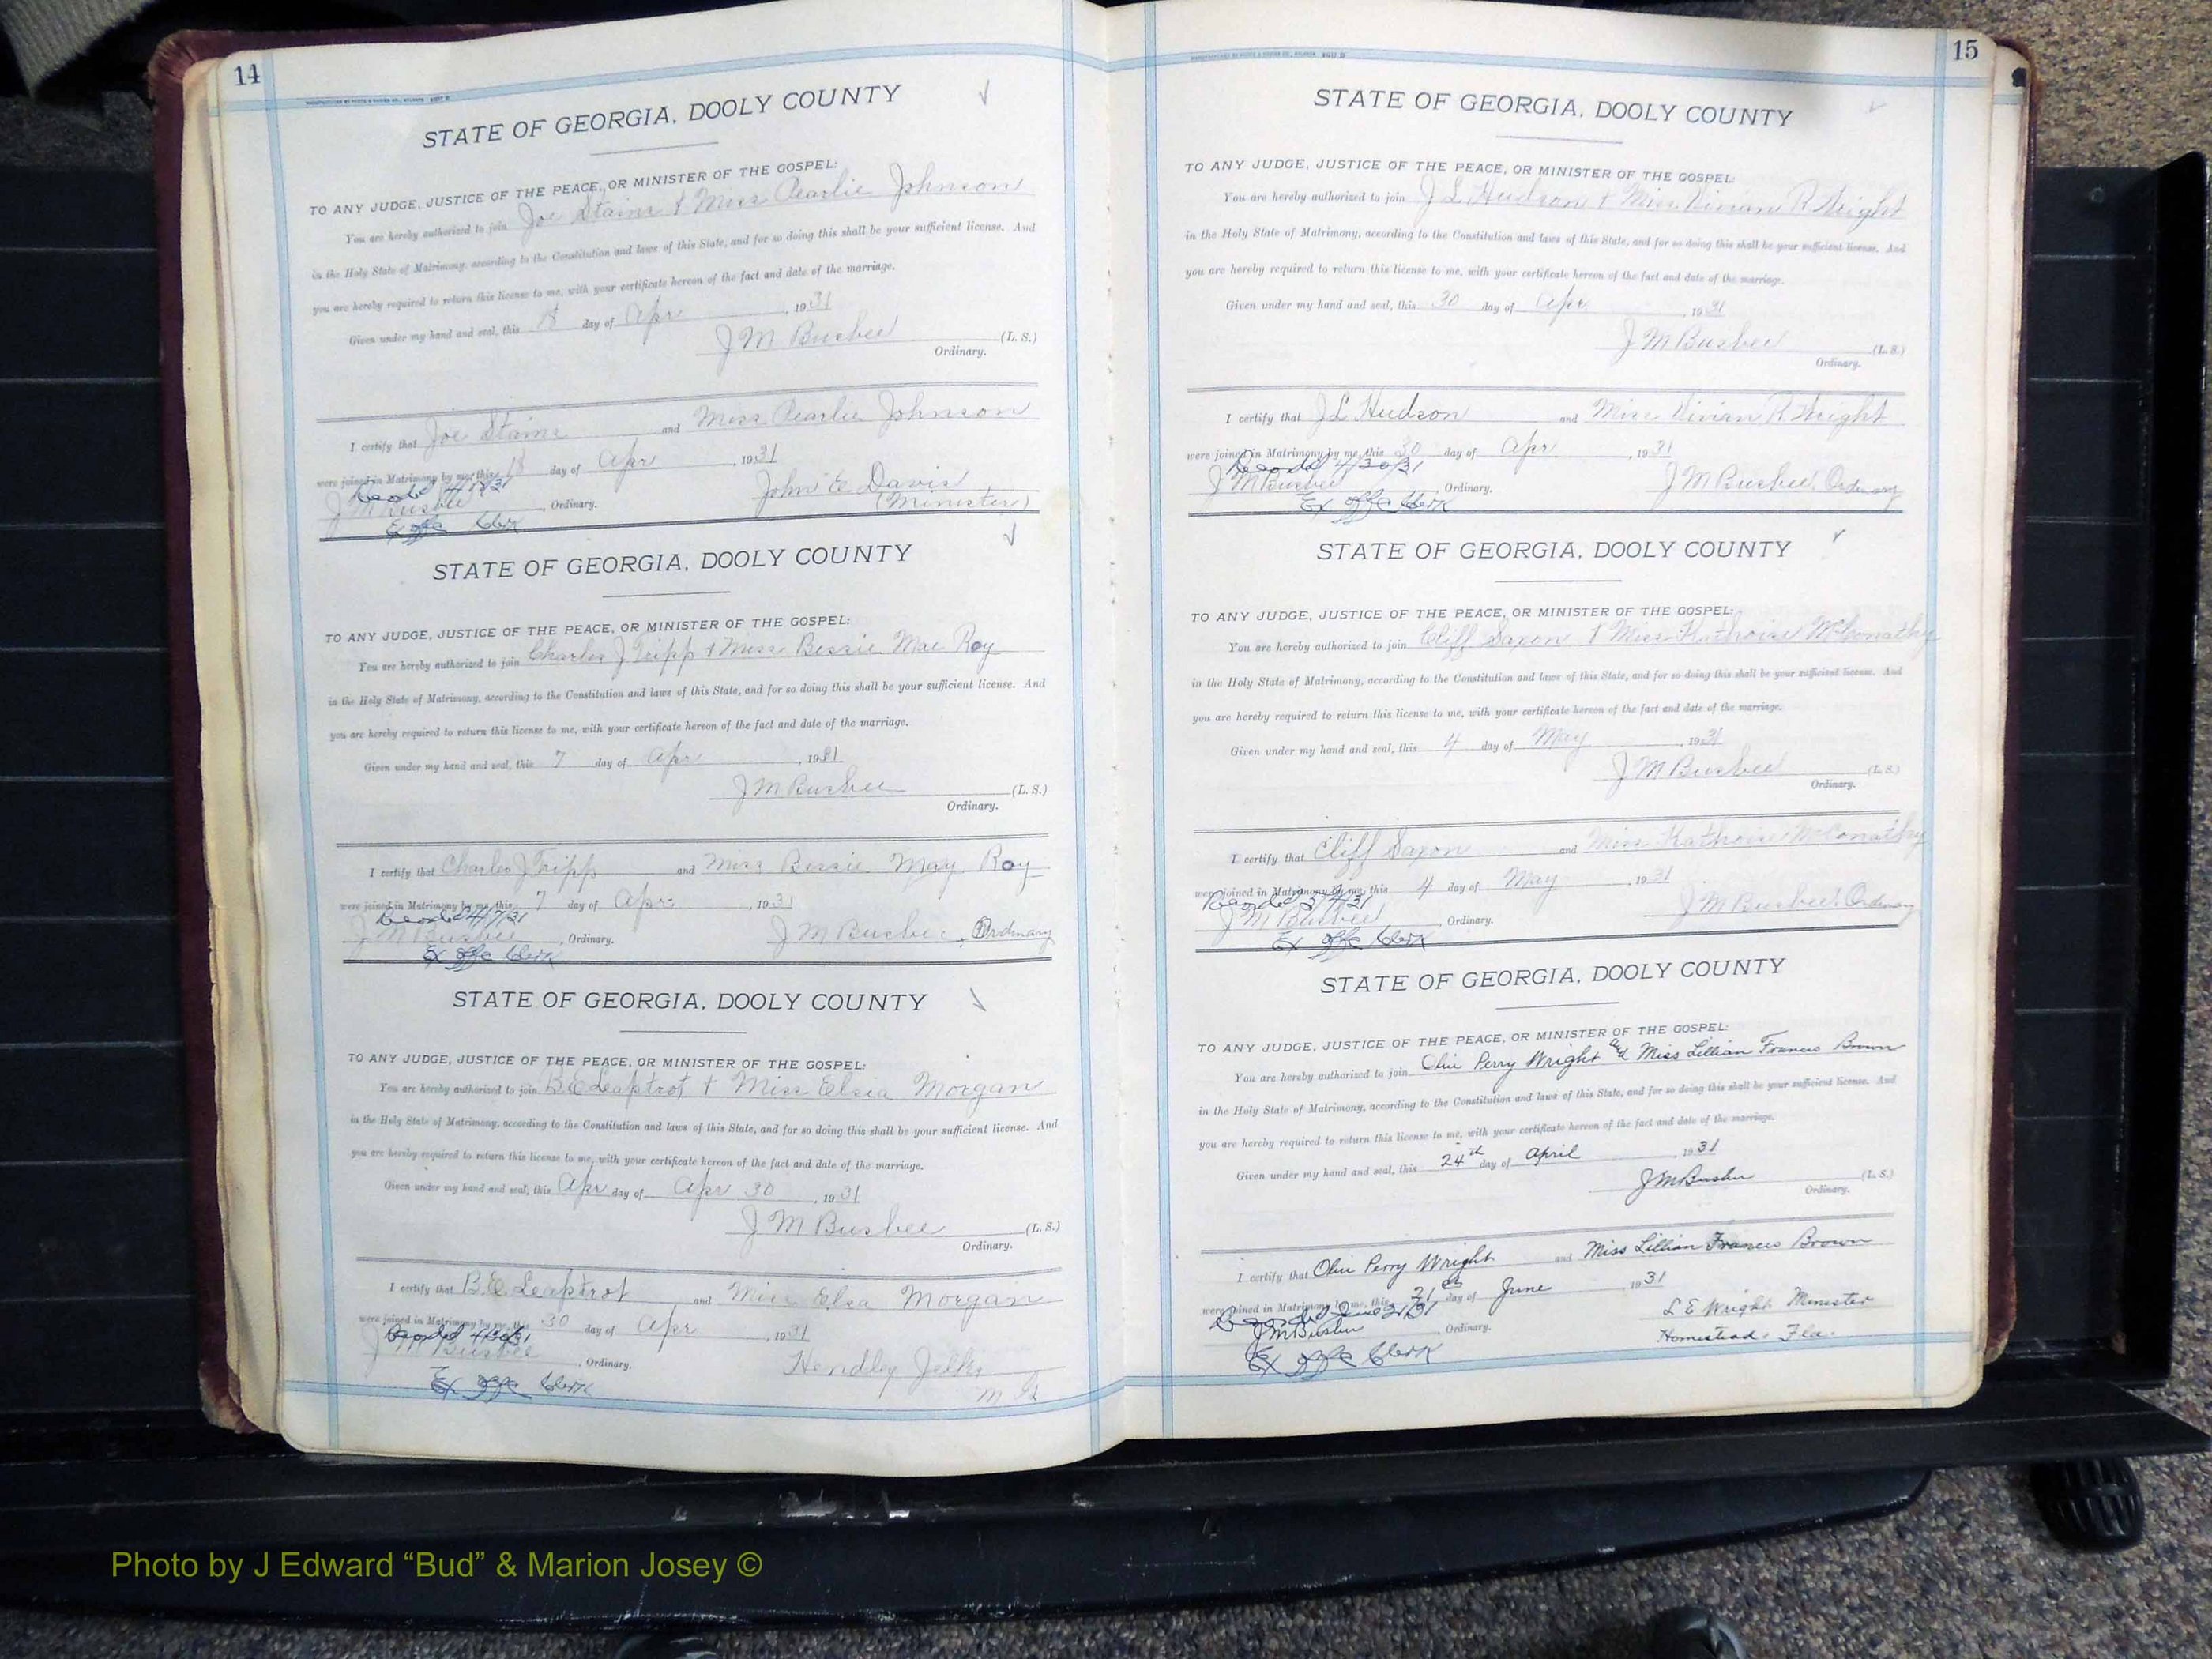 14
STATE OF GEORGIA, DOOLY COUNTY
TO ANY JUDGE, JUSTICE OF THE PEACE, OR MINISTER OF THE GOSPEL:
You are hereby authorized to join Joe Stains & Miss Pearlie Johnson
in the Holy State of Matrimony, according to the Constitution and laws of this State, and for so doing this shall be your sufficient license. And
you are hereby required to return this license to me, with your certificate hereon of the fact and date of the marriage.
Given under my hand and seal, this 18 day of Apr, 1931
J M Busbee (L. S.)
Ordinary.
I certify that Joe Stains and Miss Pearlie Johnson
were joined in Matrimony by me, this 18 day of Apr, 1931
Recorded 4/18/31 John E Davis
J M Busbee, Ordinary. (Minister)
Ex offo Clerk
STATE OF GEORGIA, DOOLY COUNTY
TO ANY JUDGE, JUSTICE OF THE PEACE, OR MINISTER OF THE GOSPEL:
You are hereby authorized to join Charles J Tripp & Miss Bessie Mae Roy
in the Holy State of Matrimony, according to the Constitution and laws of this State, and for so doing this shall be your sufficient license. And
you are hereby required to return this license to me, with your certificate hereon of the fact and date of the marriage.
Given under my hand and seal, this 7 day of Apr, 1931
J M Busbee (L. S.)
Ordinary.
I certify that Charles J Tripp and Miss Bessie May Roy
were joined in Matrimony by me, this 7 day of Apr, 1931
Recorded 4/7/31
J M Busbee, Ordinary. J M Busbee, Ordinary
Ex offo Clerk
STATE OF GEORGIA, DOOLY COUNTY
TO ANY JUDGE, JUSTICE OF THE PEACE, OR MINISTER OF THE GOSPEL:
You are hereby authorized to join B.E Leaptrot & Miss Elsia Morgan
in the Holy State of Matrimony, according to the Constitution and laws of this State, and for so doing this shall be your sufficient license. And
you are hereby required to return this license to me, with your certificate hereon of the fact and date of the marriage.
Given under my hand and seal, this Apr day of Apr 30, 1931
J M Busbee (L. S.)
Ordinary.
I certify that B.E. Leaptrot and Miss Elsa Morgan
were joined in Matrimony by me, this 30 day of Apr, 1931
Recorded 4/30/31
J M Busbee, Ordinary. Hendley Jelks
Ex offo Clerk M G
15
STATE OF GEORGIA, DOOLY COUNTY
TO ANY JUDGE, JUSTICE OF THE PEACE, OR MINISTER OF THE GOSPEL:
You are hereby authorized to join J L Hudson & Miss Vivian R Wright
in the Holy State of Matrimony, according to the Constitution and laws of this State, and for so doing this shall be your sufficient license. And
you are hereby required to return this license to me, with your certificate hereon of the fact and date of the marriage.
Given under my hand and seal, this 30 day of Apr, 1931
J M Busbee (L. S.)
Ordinary.
I certify that J L Hudson and Miss Vivian R Wright
were joined in Matrimony by me, this 30 day of Apr, 1931
Recorded 4/30/31
J M Busbee, Ordinary. J M Busbee, Ordinary
Ex offo Clerk
STATE OF GEORGIA, DOOLY COUNTY
TO ANY JUDGE, JUSTICE OF THE PEACE, OR MINISTER OF THE GOSPEL:
You are hereby authorized to join Cliff Saxon & Miss McConathy
in the Holy State of Matrimony, according to the Constitution and laws of this State, and for so doing this shall be your sufficient license. And
you are hereby required to return this license to me, with your certificate hereon of the fact and date of the marriage.
Given under my hand and seal, this 4 day of May, 1931
J M Busbee (L. S.)
Ordinary.
I certify that Cliff Saxon and Miss McConathy
were joined in Matrimony by me, this 4 day of May, 1931
Recorded 5/4/31
J M Busbee, Ordinary. J M Busbee, Ordinary
Ex offo Clerk
STATE OF GEORGIA, DOOLY COUNTY
TO ANY JUDGE, JUSTICE OF THE PEACE, OR MINISTER OF THE GOSPEL:
You are hereby authorized to join Olin Perry Wright and Miss Lillian Frances Brown
in the Holy State of Matrimony, according to the Constitution and laws of this State, and for so doing this shall be your sufficient license. And
you are hereby required to return this license to me, with your certificate hereon of the fact and date of the marriage.
Given under my hand and seal, this 24th day of April, 1931
J M Busbee (L. S.)
Ordinary.
I certify that Olin Perry Wright and Miss Lillian Frances Brown
were joined in Matrimony by me, this 21st day of June, 1931
Recorded June 21/31 L E Wright Minister
J M Busbee, Ordinary. Homestead, Fla.
Ex offo Clerk
Photo by J Edward “Bud” & Marion Josey ©